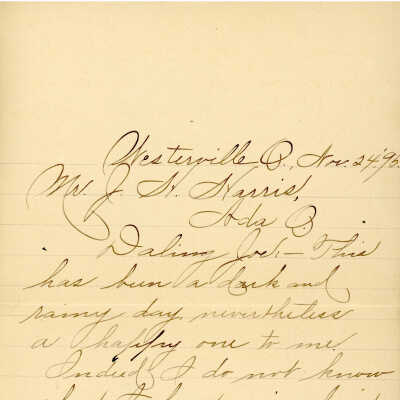 Westerville O., Nov. 24 '95.
Mr. J. H. Harris,
Ada O.
Daling Joe:— This
has been a dark and
rainy day, nevertheless
a happy one to me.
Indeed I do not know